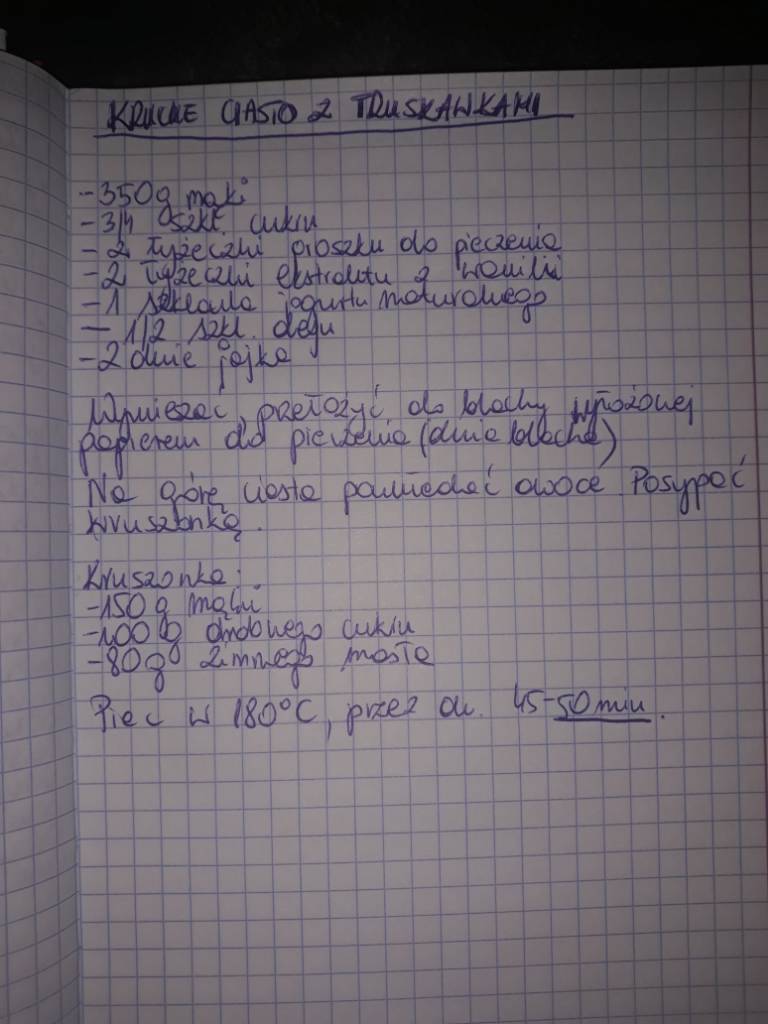 KRUCHE CIASTO Z TRUSKAWKAMI
- 350g mąki
- 3/4 szkl. cukru
- 2 łyżeczki proszku do pieczenia
- 2 łyżeczki ekstraktu z wanilii
- 1 szklanka jogurtu naturalnego
- 1/2 szkl. oleju
- 2 duże jajka
Wymieszać, przełożyć do blachy wyłożonej
papierem do pieczenia (duża blacha)
Na górę ciasta poukładać owoce. Posypać
kruszonką.
Kruszonka:
- 150 g mąki
- 100 g drobnego cukru
- 80g zimnego masła
Piec w 180°C, przez ok. 45-50 min.